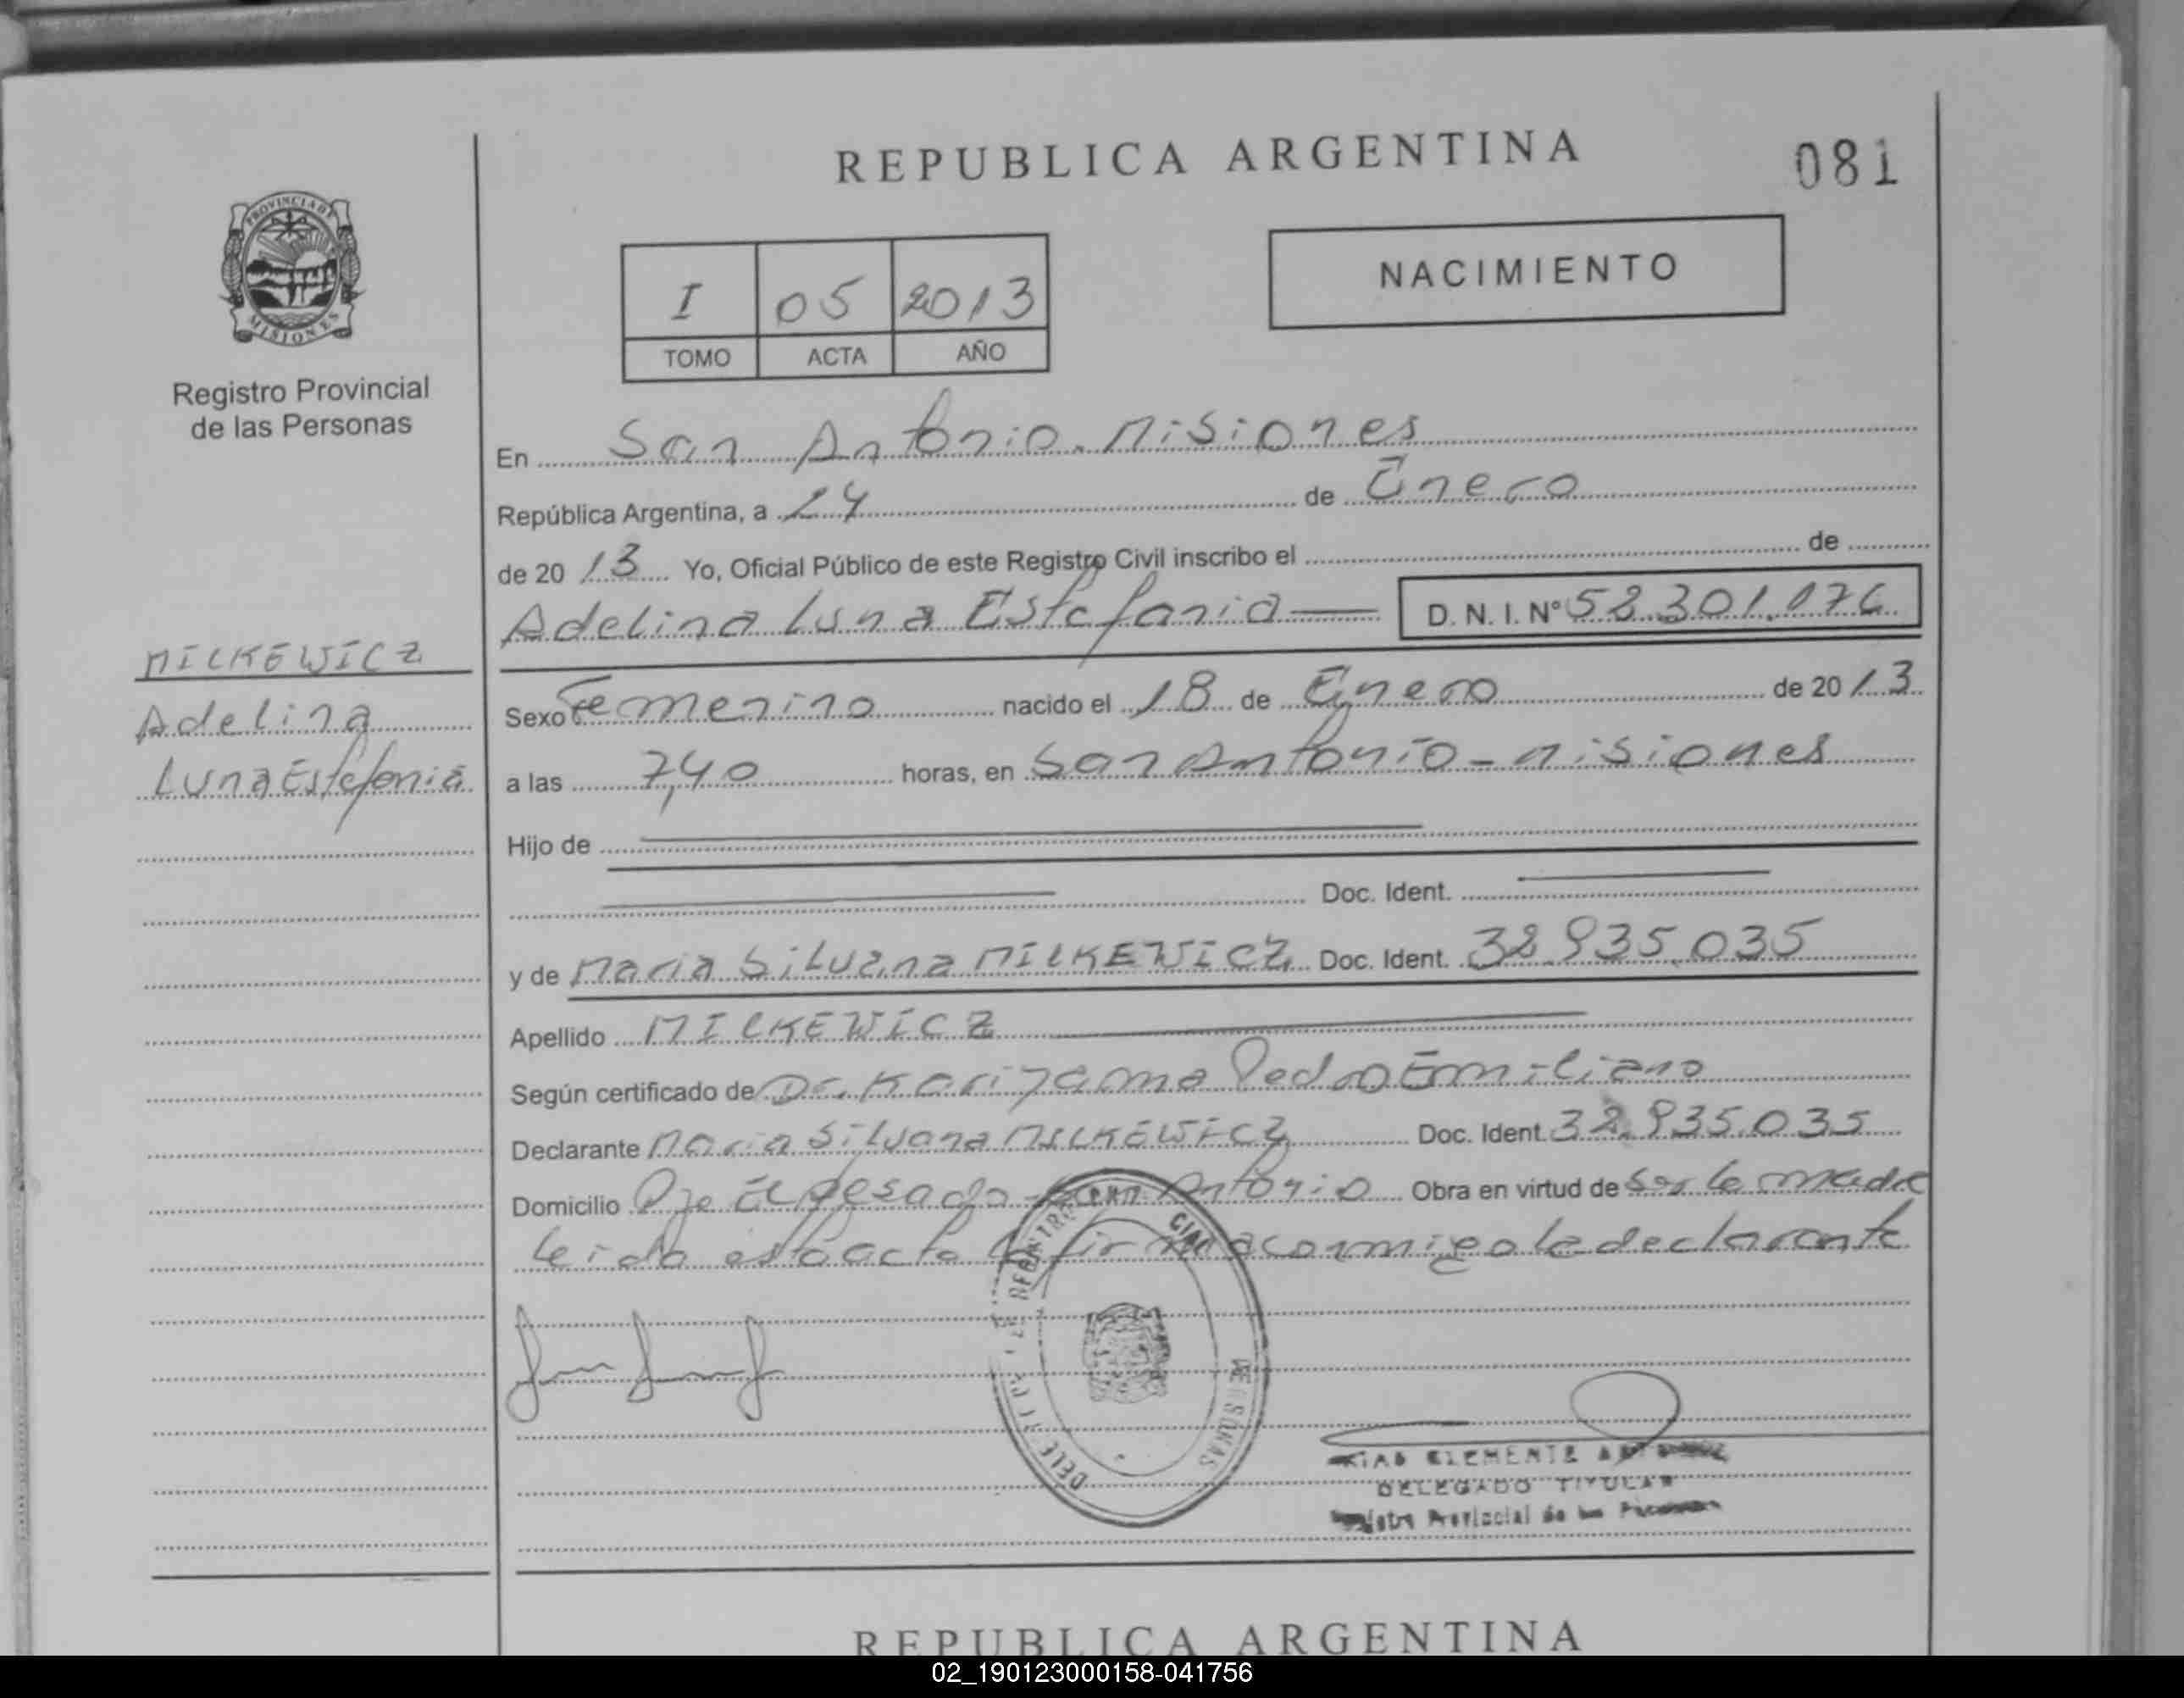 REPUBLICA ARGENTINA
081
PROVINCIA DE
MISIONES
Registro Provincial
de las Personas
I 05 2013
TOMO ACTA AÑO
NACIMIENTO
En San Antonio. Misiones
República Argentina, a 24 de Enero
de 2013 Yo, Oficial Público de este Registro Civil inscribo el de
Adelina Luna Estefania D. N. I. Nº 52.301.176
MILKEWICZ
Adelina
Luna Estefania
Sexo Femenino nacido el 18 de Enero de 2013
a las 7,40 horas, en San Antonio - Misiones
Hijo de
Doc. Ident.
y de Maria Silvana MILKEWICZ Doc. Ident. 32.935.035
Apellido MILKEWICZ
Según certificado de Dr. Kariyama Pedro Emiliano
Declarante Maria Silvana MILKEWICZ Doc. Ident. 32.935.035
Domicilio Pje El pesado - San Antonio Obra en virtud de Ser la madre
leida esta acta la firma conmigo la declarante
CLEMENTE
DELEGADO TITULAR
Registro Provincial de las Personas
REPUBLICA ARGENTINA
02_190123000158-041756